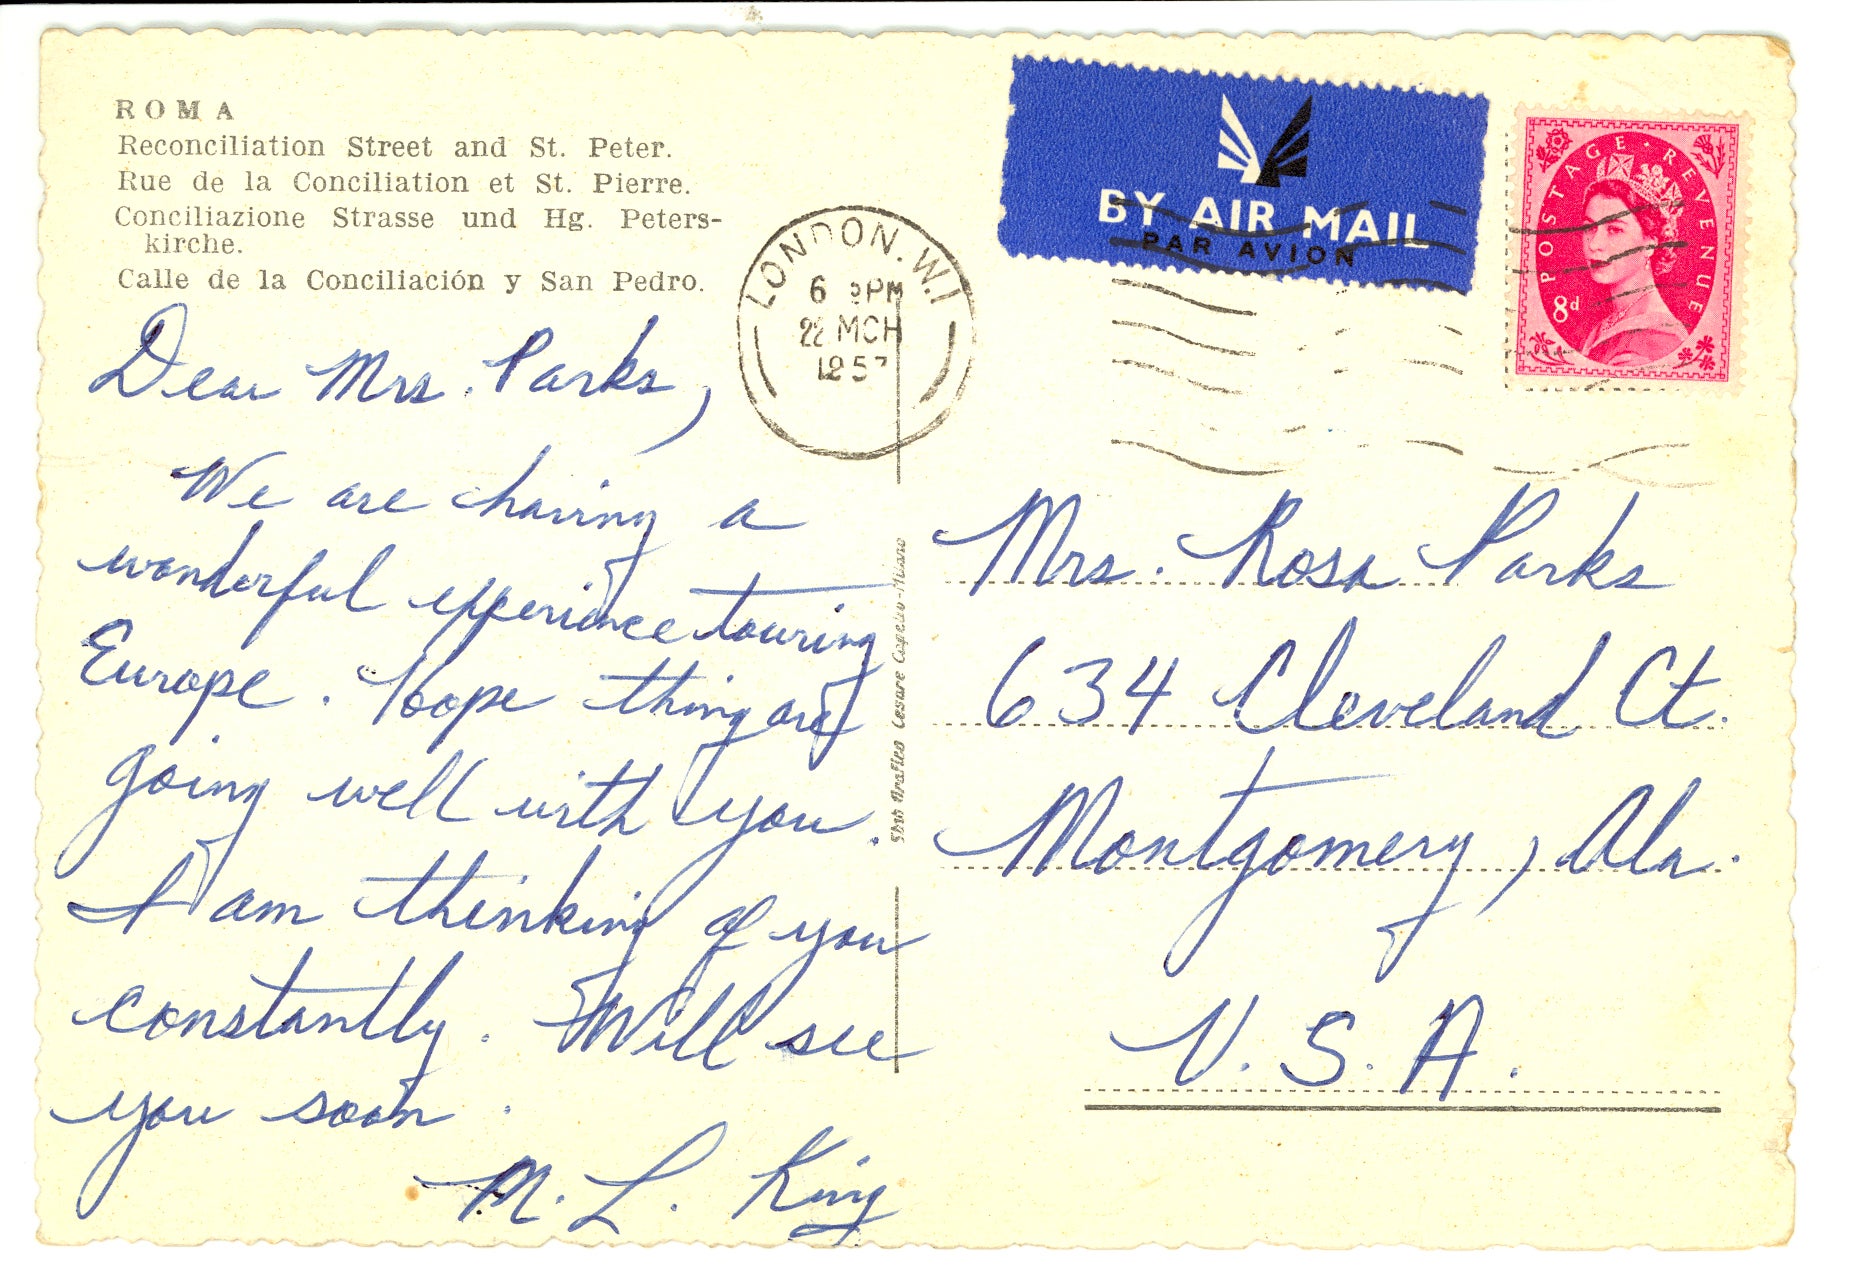 ROMA
Reconciliation Street and St. Peter.
Rue de la Conciliation et St. Pierre.
Conciliazione Strasse und Hg. Peters-
kirche.
Calle de la Conciliación y San Pedro.
Dear Mrs. Parks,
We are having a
wonderful experience touring
Europe. Hope things are
going well with you.
I am thinking of you
constantly. Will see
you soon.
M. L. King
LONDON.W.1
6 PM
22 MCH
1957
BY AIR MAIL
PAR AVION
POSTAGE · REVENUE
8d
Cesare Capello-Milano
Mrs. Rosa Parks
634 Cleveland Ct.
Montgomery, Ala.
U.S.A.